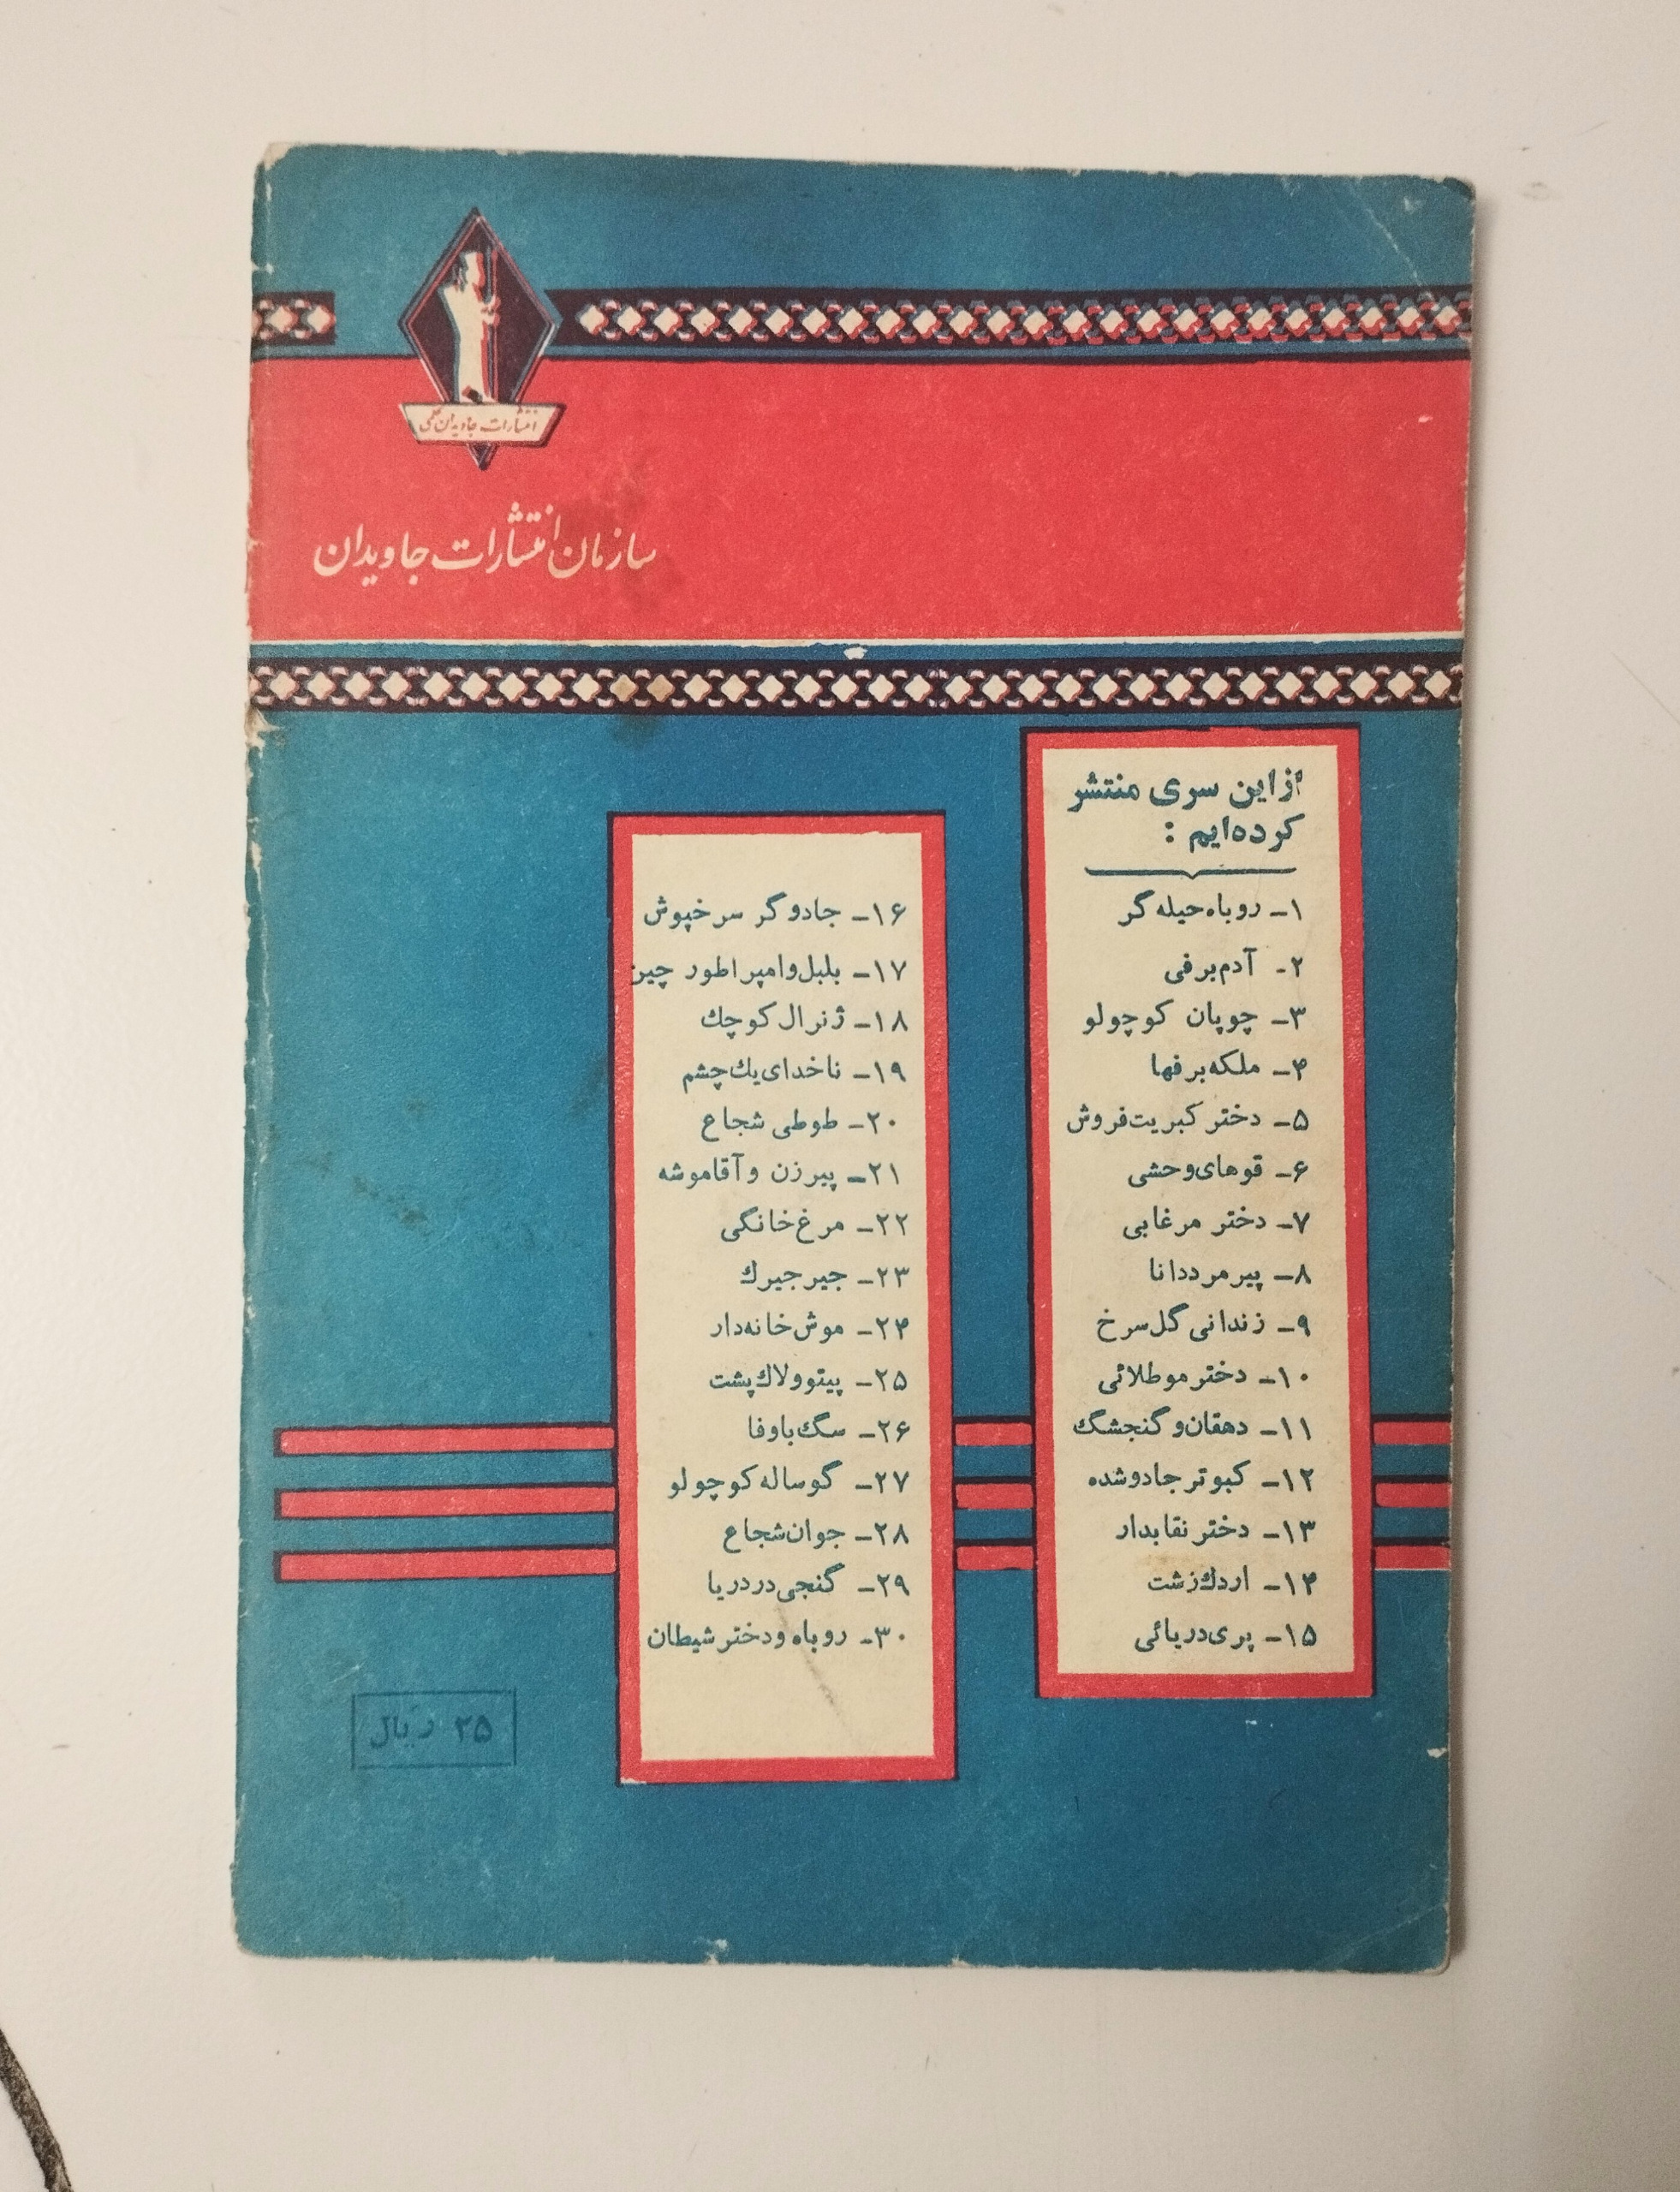 انتشارات جاویدان علمی
سازمان انتشارات جاویدان
از این سری منتشر
کرده‌ایم :
۱ــ روباه حیله گر
۲ـ آدم برفی
۳ــ چوپان کوچولو
۴ــ ملکه برفها
۵ــ دختر کبریت فروش
۶ــ قوهای وحشی
۷ــ دختر مرغابی
۸ــ پیرمرد دانا
۹ــ زندانی گل سرخ
۱۰ــ دختر مو طلائی
۱۱ــ دهقان و گنجشگ
۱۲ــ کبوتر جادو شده
۱۳ــ دختر نقابدار
۱۴ــ اردك زشت
۱۵ــ پری دریائی
۱۶ــ جادوگر سرخپوش
۱۷ــ بلبل و امپراطور چین
۱۸ــ ژنرال کوچك
۱۹ــ ناخدای یك چشم
۲۰ــ طوطی شجاع
۲۱ــ پیرزن و آقا موشه
۲۲ــ مرغ خانگی
۲۳ــ جیرجیرك
۲۴ــ موش خانه‌دار
۲۵ــ پیتو و لاك پشت
۲۶ــ سگ باوفا
۲۷ــ گوساله کوچولو
۲۸ــ جوان شجاع
۲۹ــ گنجی در دریا
۳۰ــ روباه و دختر شیطان
۲۵ ریال